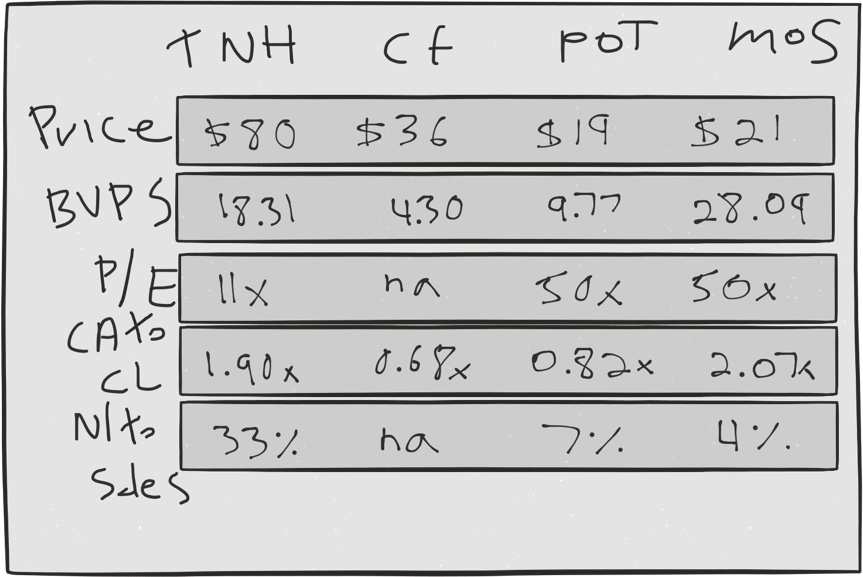 TNH CF POT MOS
Price $80 $36 $19 $21
BVPS 18.31 4.30 9.77 28.09
P/E 11x na 50x 50x
CA to
CL 1.90x 0.68x 0.82x 2.07x
NI to 33% na 7% 4%
Sales